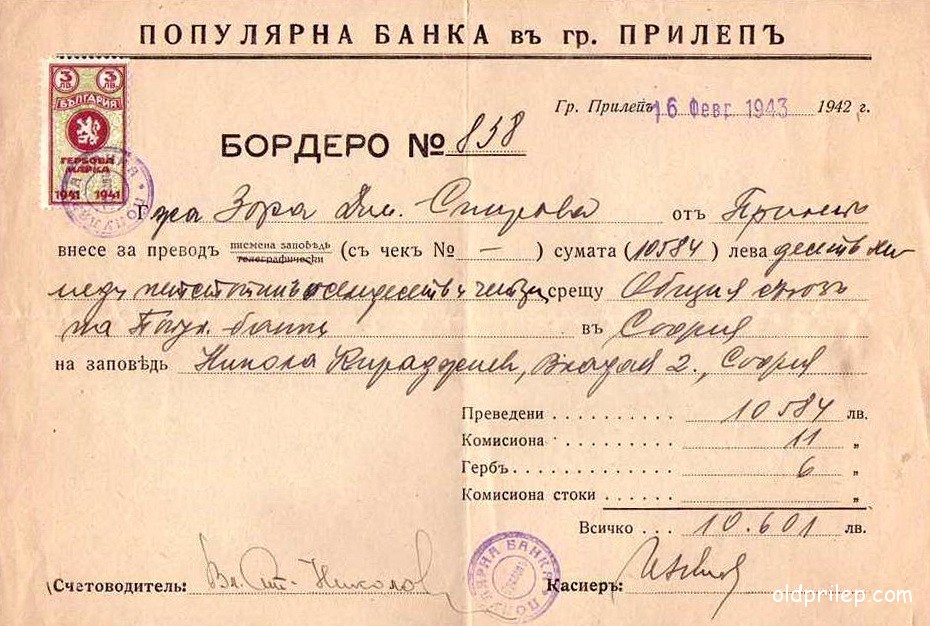 ПОПУЛЯРНА БАНКА въ гр. ПРИЛЕПЪ
3 ЛВ. 3 ЛВ.
БЪЛГАРИЯ
ГЕРБОВА
МАРКА
1941 1941
Гр. Прилепъ 16 Февг 1943 1942 г.
БОРДЕРО № 858
Г жа Зора Дим. Спирова отъ Прилепъ
внесе за преводъ писмена заповѣдь телеграфически (съ чек № — ) сумата (10584) лева десеть хи-
ляди петстотинъ осемдесеть и четири срещу Общия съюзъ
на Попул. банки въ София
на заповѣдь Никола Кираджиев, Владая 2., София
Преведени . . . . . . . . . . 10584 лв.
Комисиона . . . . . . . . . 11 „
Гербъ . . . . . . . . . . . . 6 „
Комисиона стоки . . . . . . „
Всичко . . . 10.601 лв.
Счетоводитель: Вл. Ст. Николов Касиеръ:
ПОПУЛЯРНА БАНКА
oldprilep.com